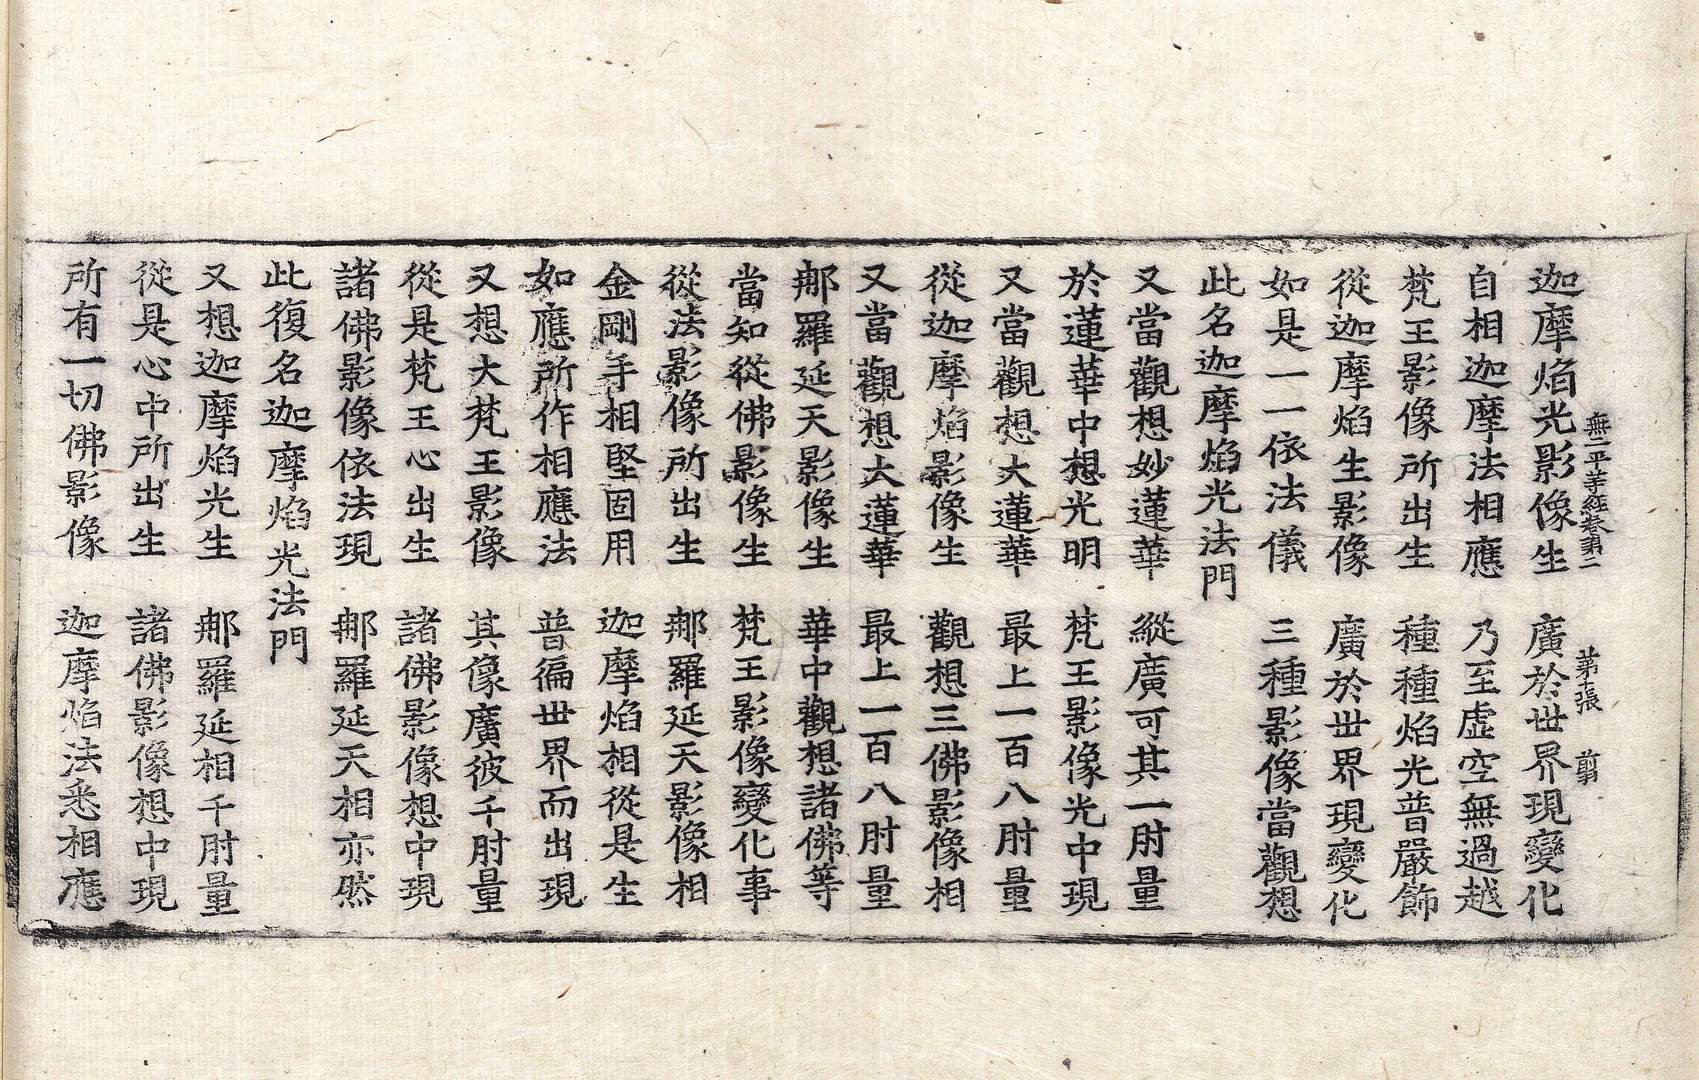 無二平等經卷第二　第十張　剪
迦摩焰光影像生　廣於世界現變化
自相迦摩法相應　乃至虛空無過越
梵王影像所出生　種種焰光普嚴飾
從迦摩焰生影像　廣於世界現變化
如是一一依法儀　三種影像當觀想
此名迦摩焰光法門
又當觀想妙蓮華　縱廣可其一肘量
於蓮華中想光明　梵王影像光中現
又當觀想大蓮華　最上一百八肘量
從迦摩焰影像生　觀想三佛影像相
又當觀想大蓮華　最上一百八肘量
那羅延天影像生　華中觀想諸佛等
當知從佛影像生　梵王影像變化事
從法影像所出生　那羅延天影像相
金剛手相堅固用　迦摩焰相從是生
如應所作相應法　普徧世界而出現
又想大梵王影像　其像廣彼千肘量
從是梵王心出生　諸佛影像想中現
諸佛影像依法現　那羅延天相亦然
此復名迦摩焰光法門
又想迦摩焰光生　那羅延相千肘量
從是心中所出生　諸佛影像想中現
所有一切佛影像　迦摩焰法悉相應